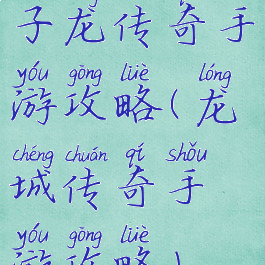 子龙传奇手
yóu gōng lüè lóng
游攻略(龙
chéng chuán qí shǒu
城传奇手
yóu gōng lüè
游攻略)